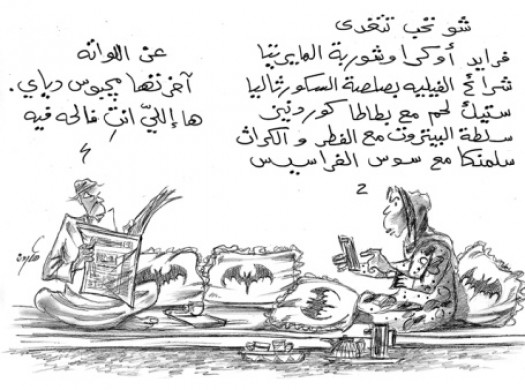 شو تحب تتغدى
فرايد أوكرا وشوربة المايربتيا
شرائح الفيليه بصلصة السكورثاليا
ستيك لحم مع بطاطا كوردنين
سلطة البيترون مع الفطر والكراث
سلمنكا مع سوس الفراسيس
عن اللواته
آخرتها مجبوس دياي.
ها إلليّ انتِ فالحه فيه